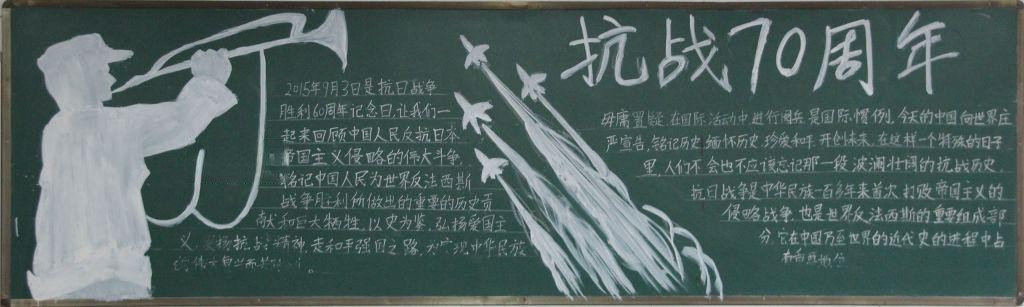 抗战70周年
2015年9月3日是抗日战争
胜利60周年纪念日,让我们一
起来回顾中国人民反抗日本
帝国主义侵略的伟大斗争,
铭记中国人民为世界反法西斯
战争胜利所做出的重要的历史贡
献和巨大牺牲,以史为鉴,弘扬爱国主
义,发扬抗战精神,走和平强国之路,为实现中华民族
的伟大复兴而
毋庸置疑,在国际活动中进行阅兵是国际惯例,今天的中国向世界庄
严宣告,铭记历史,缅怀历史,珍爱和平,开创未来,在这样一个特殊的日子
里,人们不会也不应该忘记那一段波澜壮阔的抗战历史,
抗日战争是中华民族一百多年来首次打败帝国主义的
侵略战争,也是世界反法西斯的重要组成部
分,它在中国乃至世界的近代史的进程中占